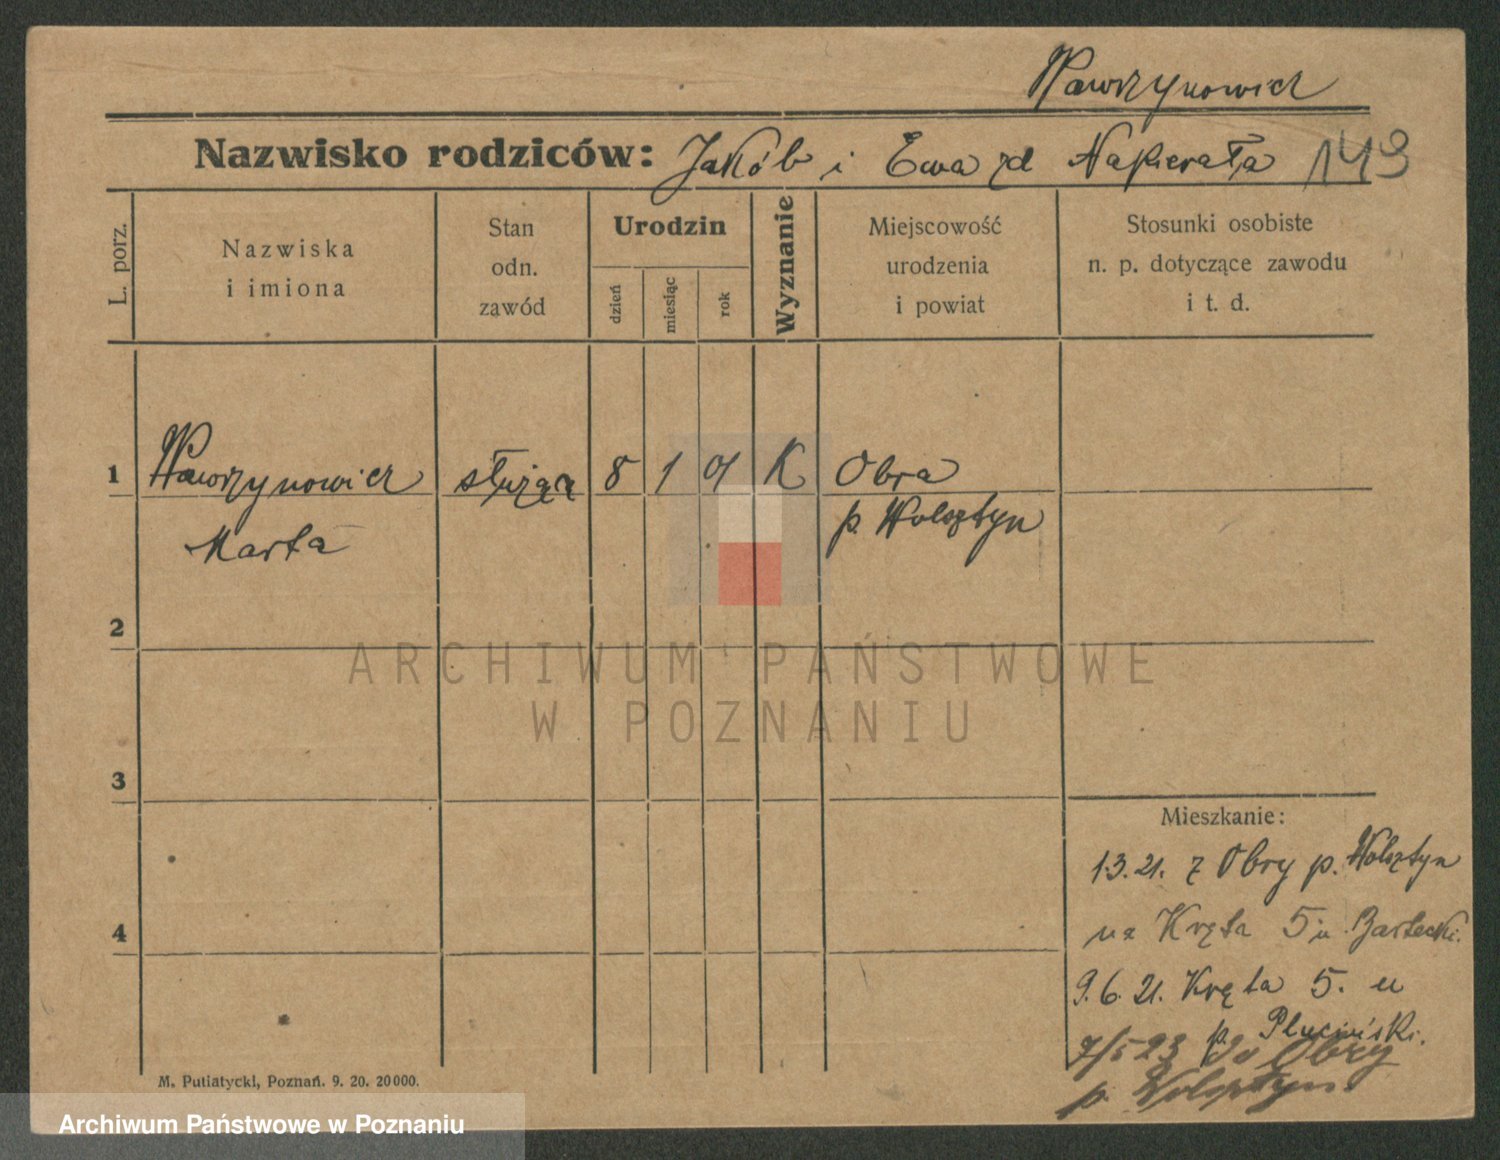 Wawrzynowicz
Nazwisko rodziców: Jakób i Ewa zd Napierała 149
L. porz.
Nazwiska
i imiona
Stan
odn.
zawód
Urodzin
dzień
miesiąc
rok
Wyznanie
Miejscowość
urodzenia
i powiat
Stosunki osobiste
n. p. dotyczące zawodu
i t. d.
1 Wawrzynowicz służąca 8 1 K Obra
Marta p. Wolsztyn
2
3
4
Mieszkanie:
1.3.21. z Obry p. Wolsztyn
na Kręta 5 u Bartecki.
9.6.21. Kręta 5. u
p. Pluciński.
7/5 23 do Obry
p. Wolsztyn
M. Putiatycki, Poznań. 9. 20. 20000.
ARCHIWUM PAŃSTWOWE
W POZNANIU
Archiwum Państwowe w Poznaniu